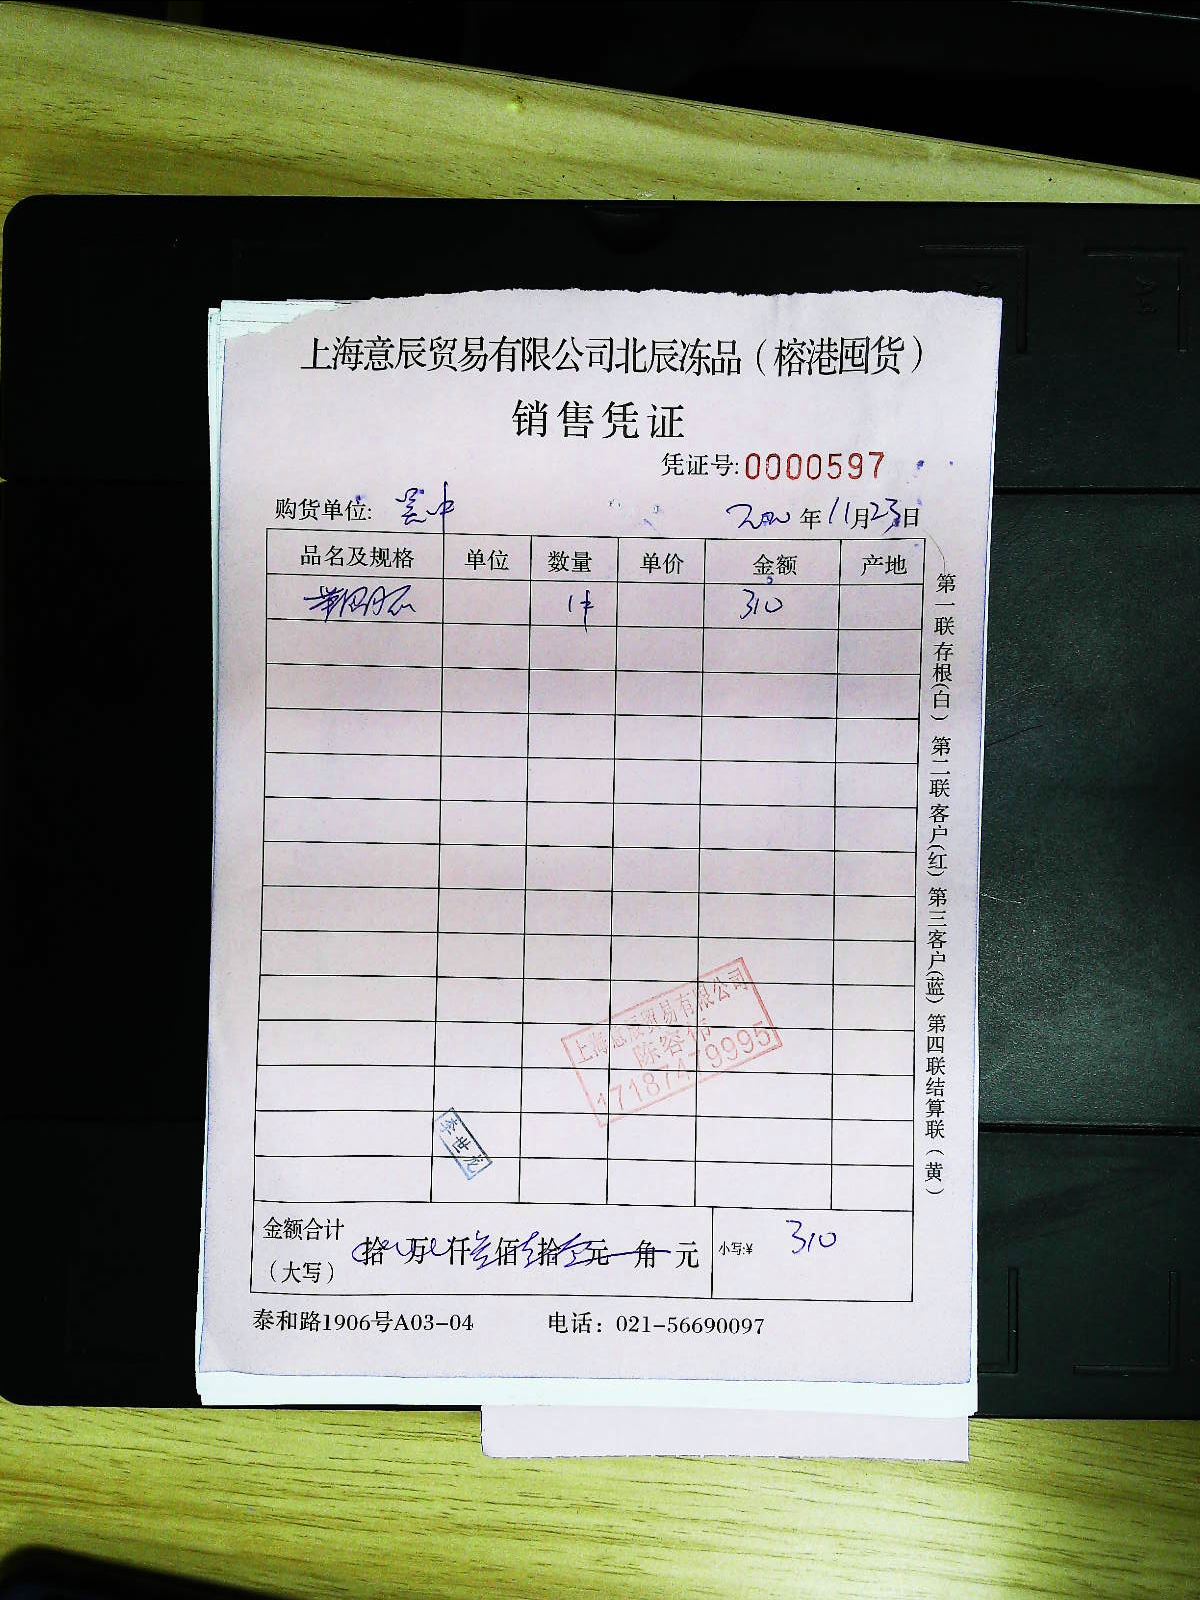 上海意辰贸易有限公司北辰冻品（榕港囤货）
销售凭证
凭证号:0000597
购货单位: 吴中
2020年11月23日
品名及规格 单位 数量 单价 金额 产地
1件 310
上海意辰贸易有限公司
陈容伟
17187479995
李世龙
金额合计（大写） 拾 万 仟 叁佰壹拾 元 角 元 小写:¥ 310
泰和路1906号A03-04 电话：021-56690097
第一联存根(白) 第二联客户(红) 第三客户(蓝) 第四联结算联（黄）